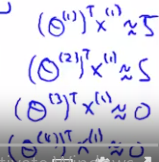 (θ⁽¹⁾)ᵀ x⁽¹⁾ ≈ 5
(θ⁽²⁾)ᵀ x⁽¹⁾ ≈ 5
(θ⁽³⁾)ᵀ x⁽¹⁾ ≈ 0
(θ⁽⁴⁾)ᵀ x⁽¹⁾ ≈ 0